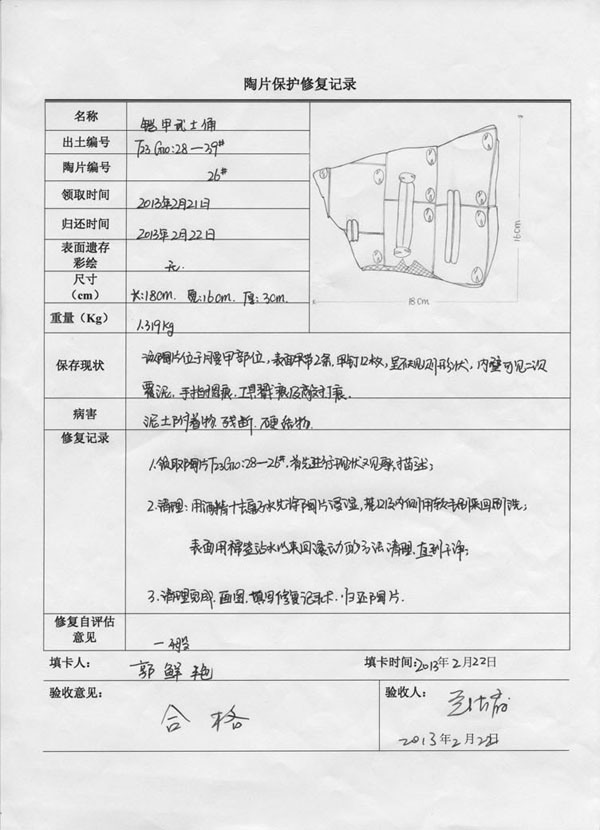 陶片保护修复记录
名称 铠甲武士俑
出土编号 T23G10:28—29#
陶片编号 26#
领取时间 2013年2月21日
归还时间 2013年2月22日
表面遗存
彩绘 无.
尺寸
(cm) 长:18cm. 宽:16cm. 厚:3cm.
重量(Kg) 1.319kg
16cm
18cm
保存现状 该陶片位于腰甲部位, 表面甲带2条. 甲钉12枚, 呈不规则形状, 内壁可见二次
覆泥. 手指摁痕, 工具戳痕及敲打痕.
病害 泥土附着物. 残断. 硬结物.
修复记录
1.领取陶片T23G10:28—26#. 首先进行现状观察, 描述;
2.清理: 用酒精+去离子水先将陶片浸湿, 然后内侧用软毛刷来回刷洗;
表面用棉签沾水以来回滚动的方法清理. 直到干净;
3.清理完成. 画图. 填写修复记录卡. 归还陶片.
修复自评估
意见 一般
填卡人: 郭鲜艳 填卡时间:2013年2月22日
验收意见: 合格
验收人:
2013年2月22日